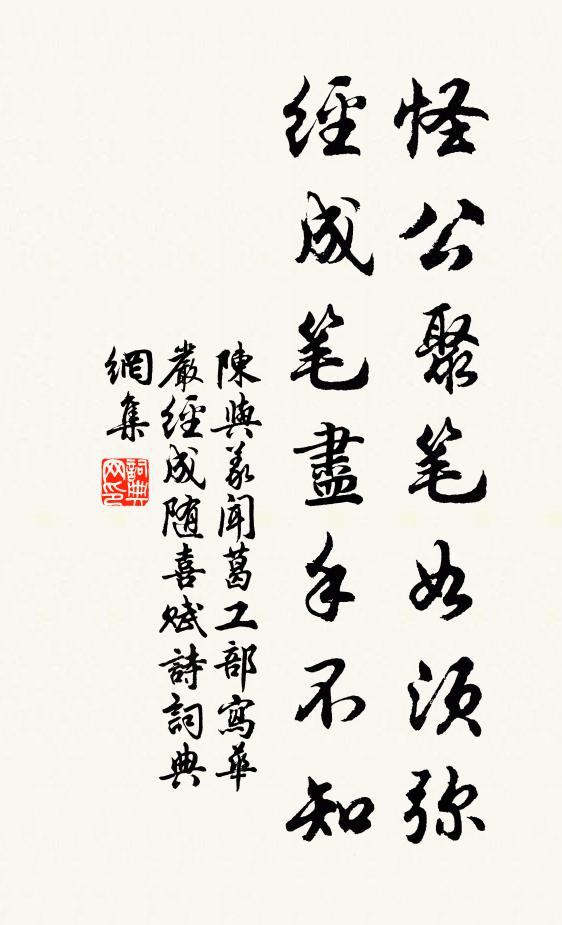 怪公聚笔如须弥
經成笔盡手不知
陳與義聞葛工部寫華
嚴經成随喜賦詩詞典
網集
詞典网印